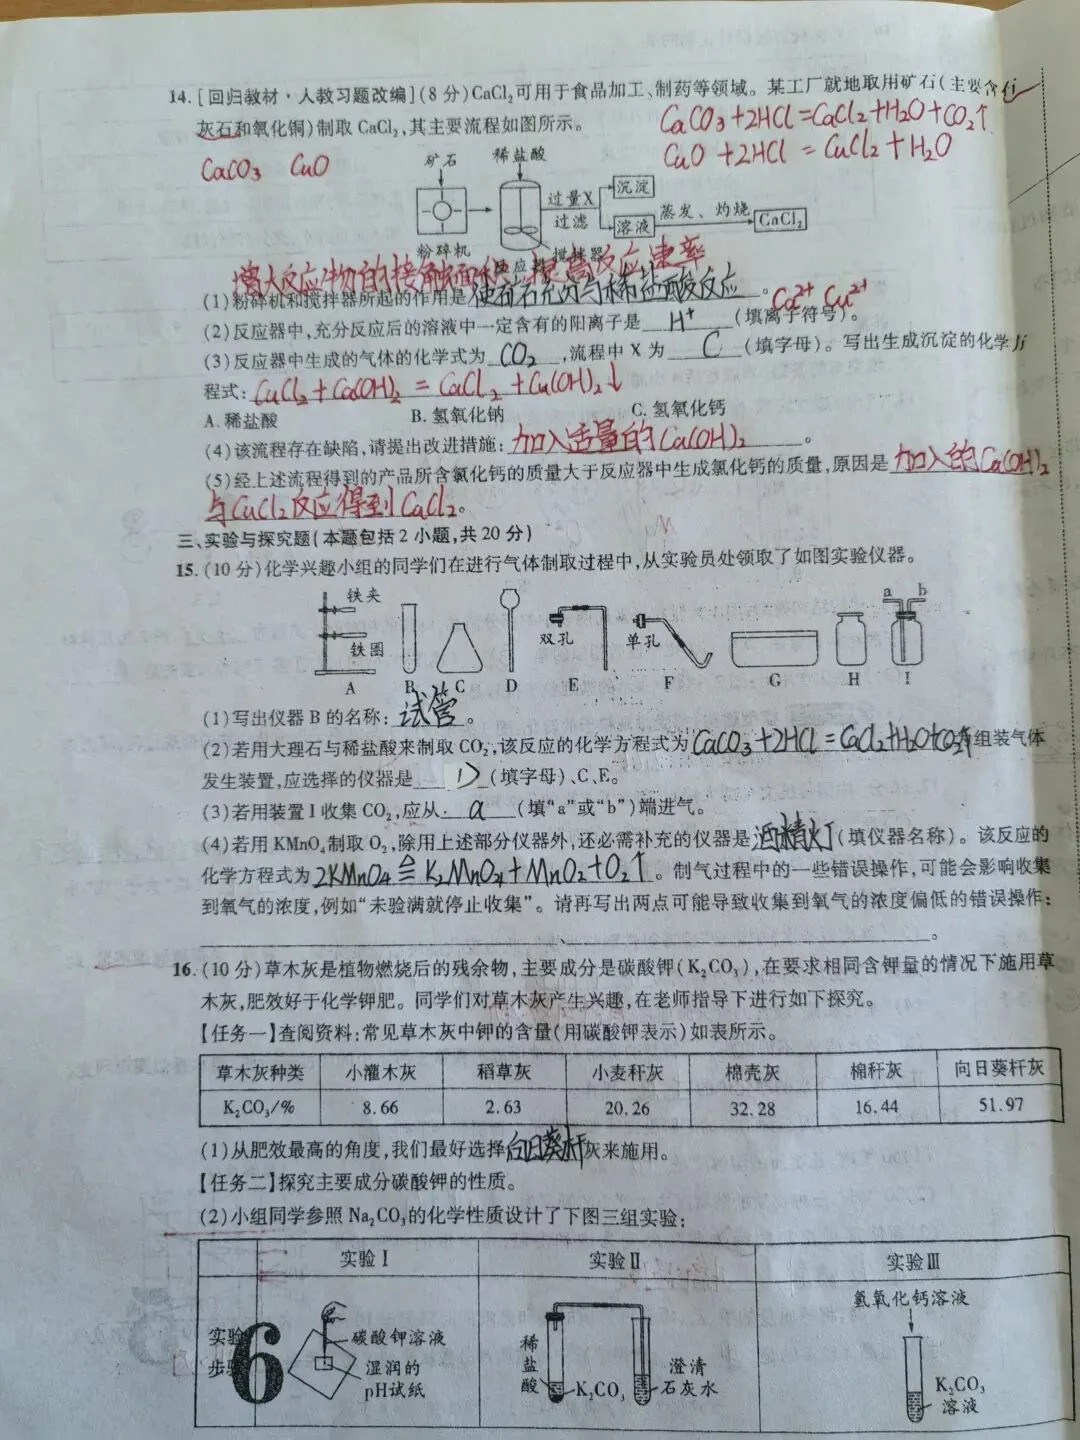 14.[回归教材·人教习题改编](8分)CaCl₂可用于食品加工、制药等领域。某工厂就地取用矿石(主要含石
灰石和氧化铜)制取 CaCl₂,其主要流程如图所示。
CaCO₃+2HCl=CaCl₂+H₂O+CO₂↑
CuO+2HCl=CuCl₂+H₂O
CaCO₃ CuO
矿石 稀盐酸
过量X 沉淀
过滤 溶液 蒸发、灼烧 CaCl₂
粉碎机 反应器 搅拌器
增大反应物的接触面积,提高反应速率
(1)粉碎机和搅拌器所起的作用是使矿石充分与稀盐酸反应。
Ca²⁺ Cu²⁺
(2)反应器中,充分反应后的溶液中一定含有的阳离子是 H⁺ (填离子符号)。
(3)反应器中生成的气体的化学式为 CO₂ ,流程中 X 为 C (填字母)。写出生成沉淀的化学方
程式:CuCl₂+Ca(OH)₂=CaCl₂+Cu(OH)₂↓
A. 稀盐酸 B. 氢氧化钠 C. 氢氧化钙
(4)该流程存在缺陷,请提出改进措施:加入适量的Ca(OH)₂。
(5)经上述流程得到的产品所含氯化钙的质量大于反应器中生成氯化钙的质量,原因是加入的Ca(OH)₂
与CuCl₂反应得到CaCl₂。
三、实验与探究题(本题包括2小题,共20分)
15.(10分)化学兴趣小组的同学们在进行气体制取过程中,从实验员处领取了如图实验仪器。
铁夹 铁圈 双孔 单孔 a b
A B C D E F G H I
(1)写出仪器 B 的名称:试管。
(2)若用大理石与稀盐酸来制取 CO₂,该反应的化学方程式为CaCO₃+2HCl=CaCl₂+H₂O+CO₂↑组装气体
发生装置,应选择的仪器是 D (填字母)、C、E。
(3)若用装置 I 收集 CO₂,应从 a (填“a”或“b”)端进气。
(4)若用 KMnO₄制取 O₂,除用上述部分仪器外,还必需补充的仪器是酒精灯(填仪器名称)。该反应的
化学方程式为2KMnO₄≜K₂MnO₄+MnO₂+O₂↑。制气过程中的一些错误操作,可能会影响收集
到氧气的浓度,例如“未验满就停止收集”。请再写出两点可能导致收集到氧气的浓度偏低的错误操作:
、 。
16.(10分)草木灰是植物燃烧后的残余物,主要成分是碳酸钾(K₂CO₃),在要求相同含钾量的情况下施用草
木灰,肥效好于化学钾肥。同学们对草木灰产生兴趣,在老师指导下进行如下探究。
【任务一】查阅资料:常见草木灰中钾的含量(用碳酸钾表示)如表所示。
草木灰种类 小灌木灰 稻草灰 小麦秆灰 棉壳灰 棉秆灰 向日葵杆灰
K₂CO₃/% 8.66 2.63 20.26 32.28 16.44 51.97
(1)从肥效最高的角度,我们最好选择向日葵杆灰来施用。
【任务二】探究主要成分碳酸钾的性质。
(2)小组同学参照 Na₂CO₃的化学性质设计了下图三组实验:
实验Ⅰ 实验Ⅱ 实验Ⅲ
实验步骤
碳酸钾溶液
湿润的
pH试纸
稀盐酸 K₂CO₃ 澄清
石灰水
氢氧化钙溶液
K₂CO₃
溶液
6